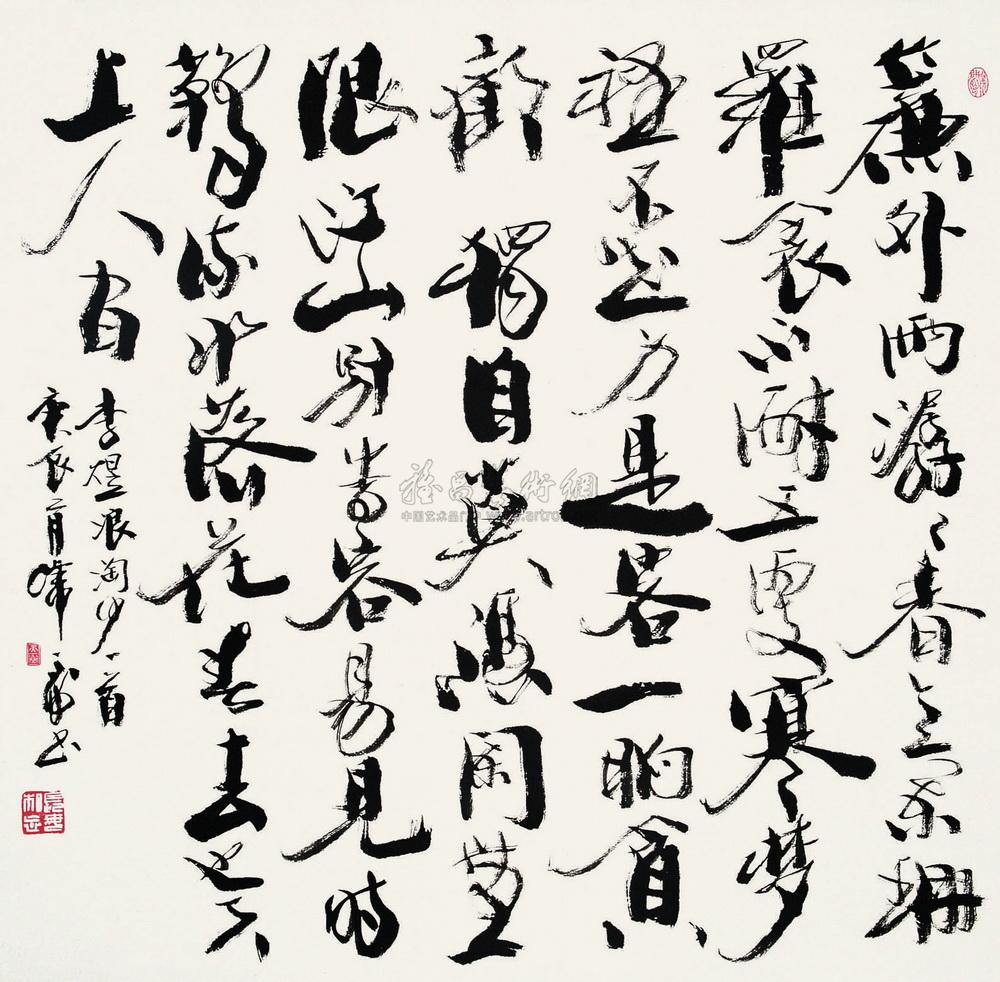 簾外雨潺々春意闌珊
羅衾不耐五更寒梦
裡不知身是客一晌貪
歡獨自莫憑闌無
限江山別時容易見時
難流水落花春去也天
上人間
李煜浪淘沙一首
庚辰
雅昌藝術網
中国艺术品门户网 www.artron